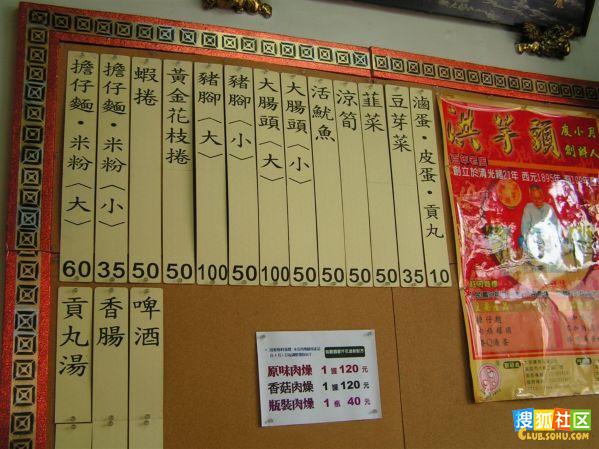 擔仔麵•米粉〈大〉 60
擔仔麵•米粉〈小〉 35
蝦捲 50
黃金花枝捲 50
豬腳〈大〉 100
豬腳〈小〉 50
大腸頭〈大〉 100
大腸頭〈小〉 50
活魷魚 50
涼筍 50
韮菜 50
豆芽菜 35
滷蛋•皮蛋•貢丸 10
貢丸湯
香腸
啤酒
原味肉燥 1罐120元
香菇肉燥 1罐120元
瓶裝肉燥 1瓶 40元
洪芋頭
度小月
創辦人
創立於清光緒21年 西元1895年
搜狐社区
CLUB.SOHU.COM